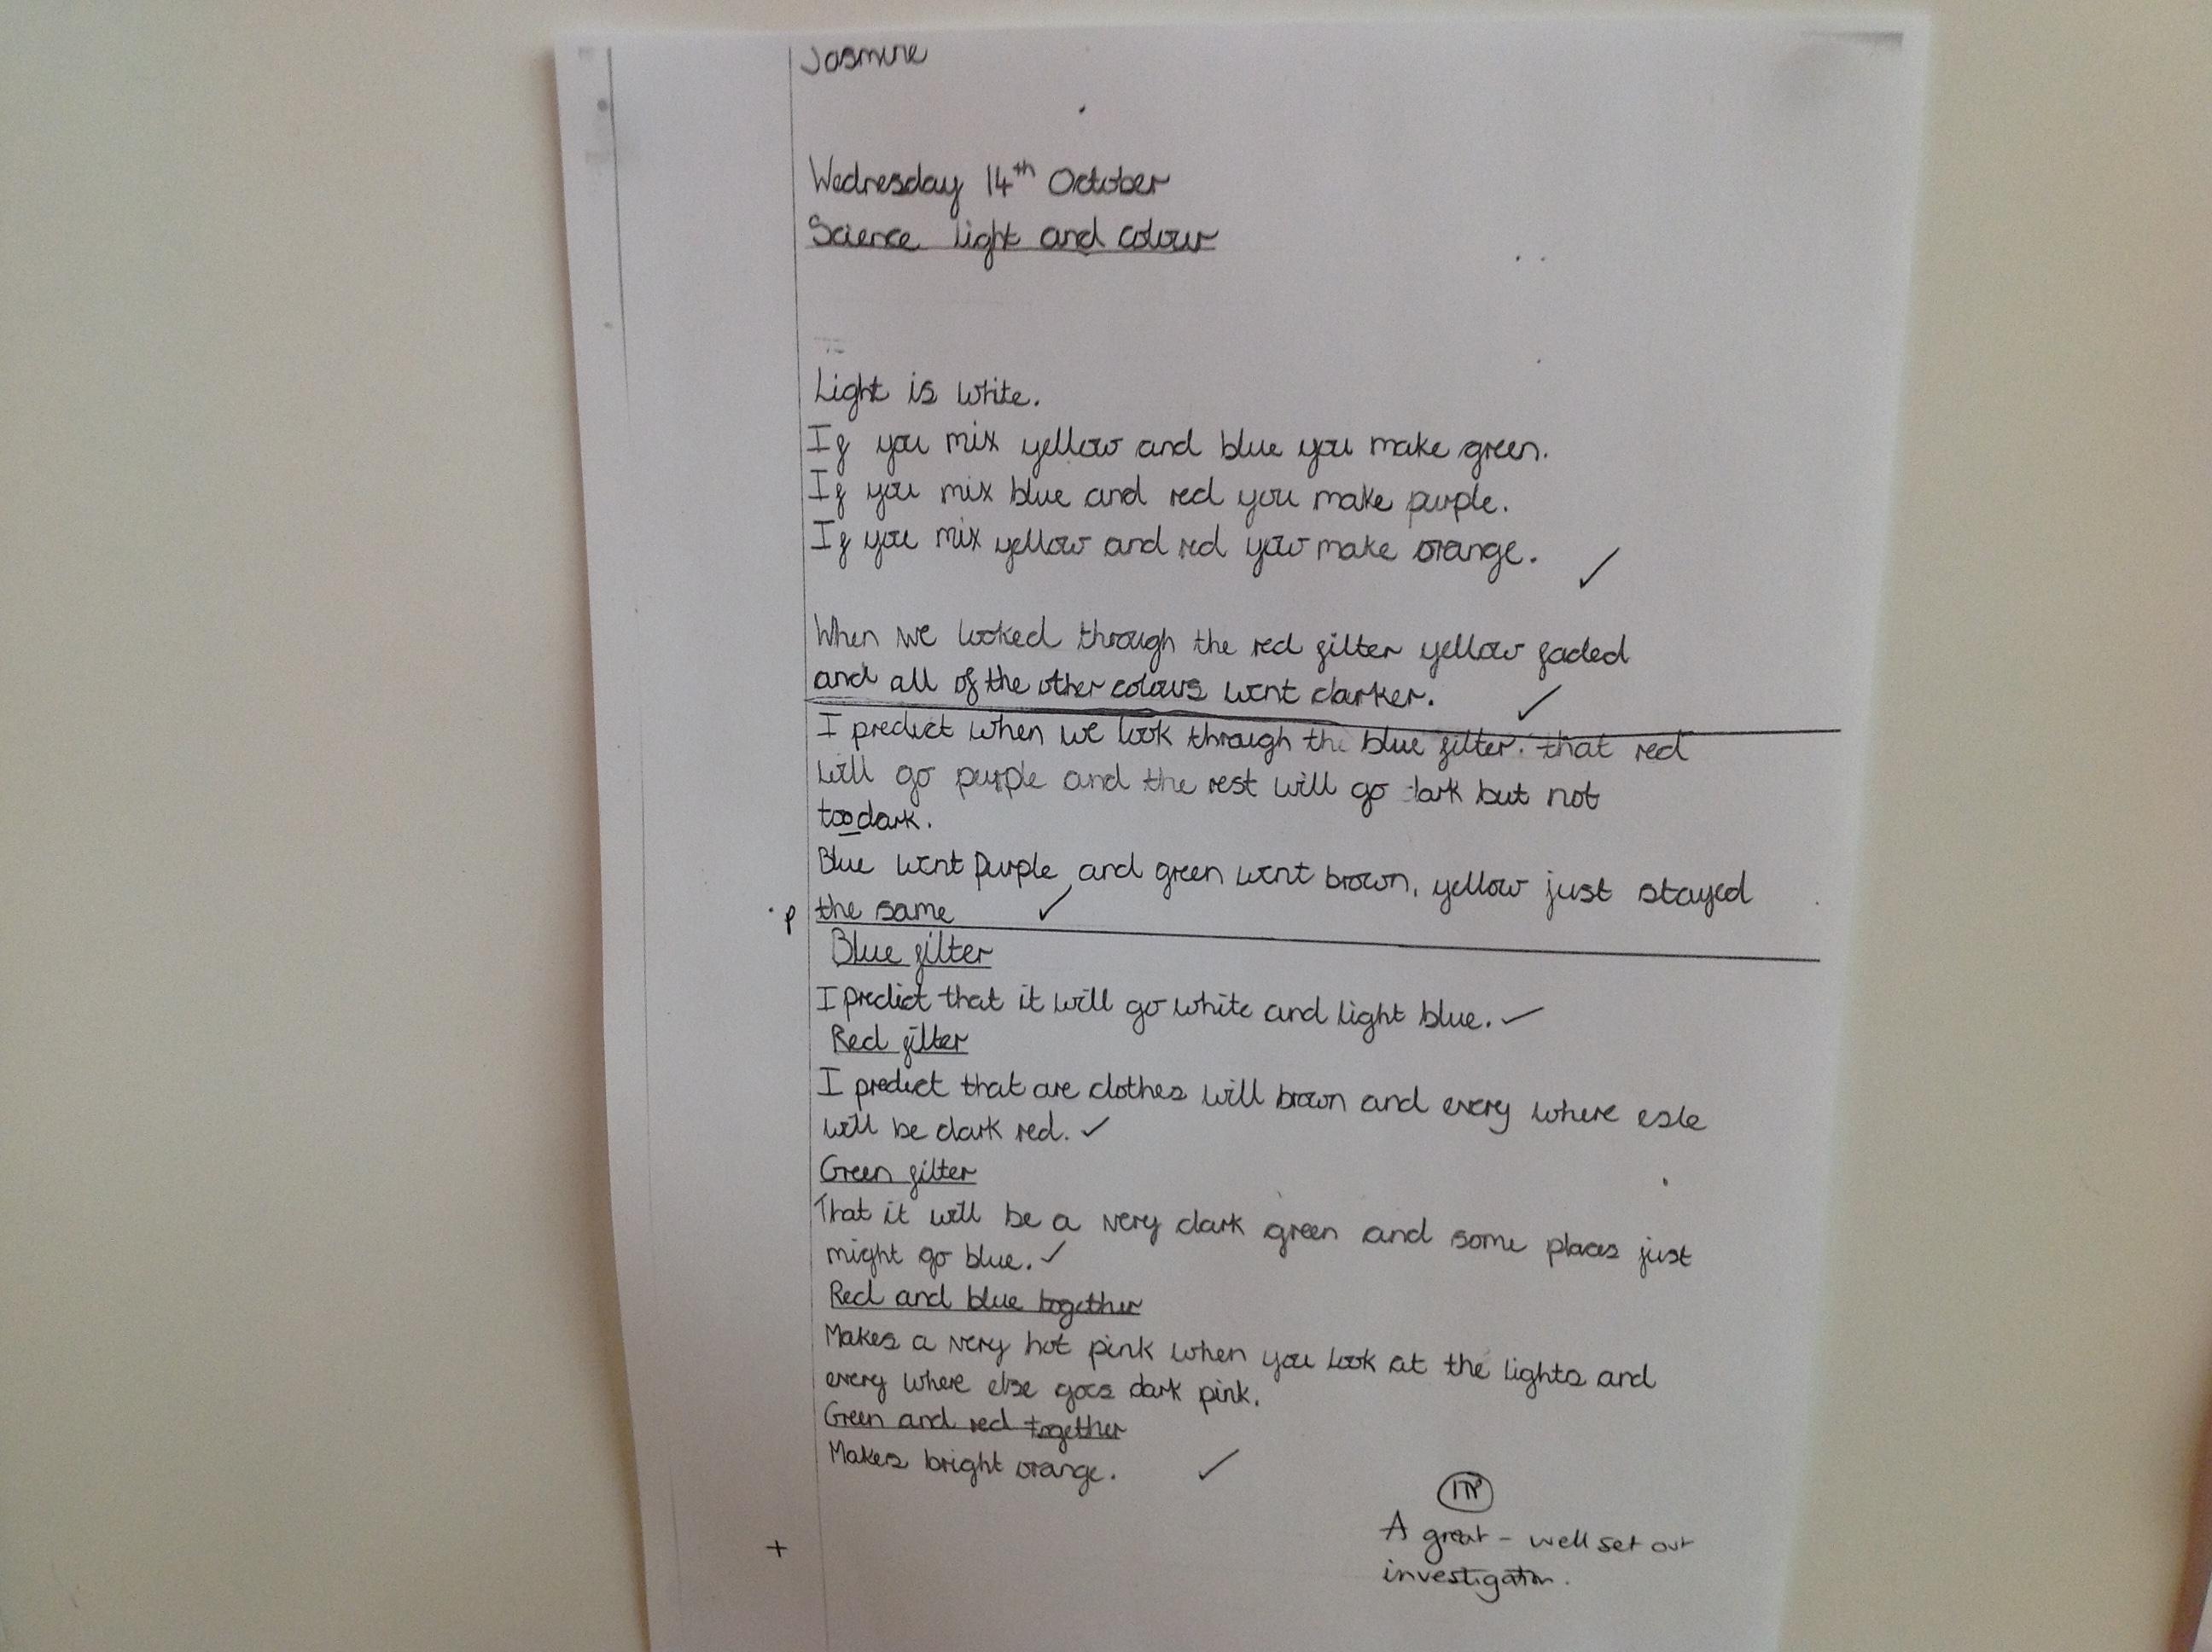 Jasmine
Wednesday 14th October
Science light and colour
Light is white.
If you mix yellow and blue you make green.
If you mix blue and red you make purple.
If you mix yellow and red you make orange. ✓
When we looked through the red filter yellow faded
and all of the other colours went darker. ✓
I predict when we look through the blue filter. that red
will go purple and the rest will go dark but not
too dark.
Blue went purple and green went brown, yellow just stayed
p the same ✓
Blue filter
I predict that it will go white and light blue. ✓
Red filter
I predict that are clothes will brown and every where esle
will be dark red. ✓
Green filter
That it will be a very dark green and some places just
might go blue. ✓
Red and blue together
Makes a very hot pink when you look at the lights and
every where else goes dark pink.
Green and red together
Makes bright orange. ✓
A great - well set out
+ investigation.